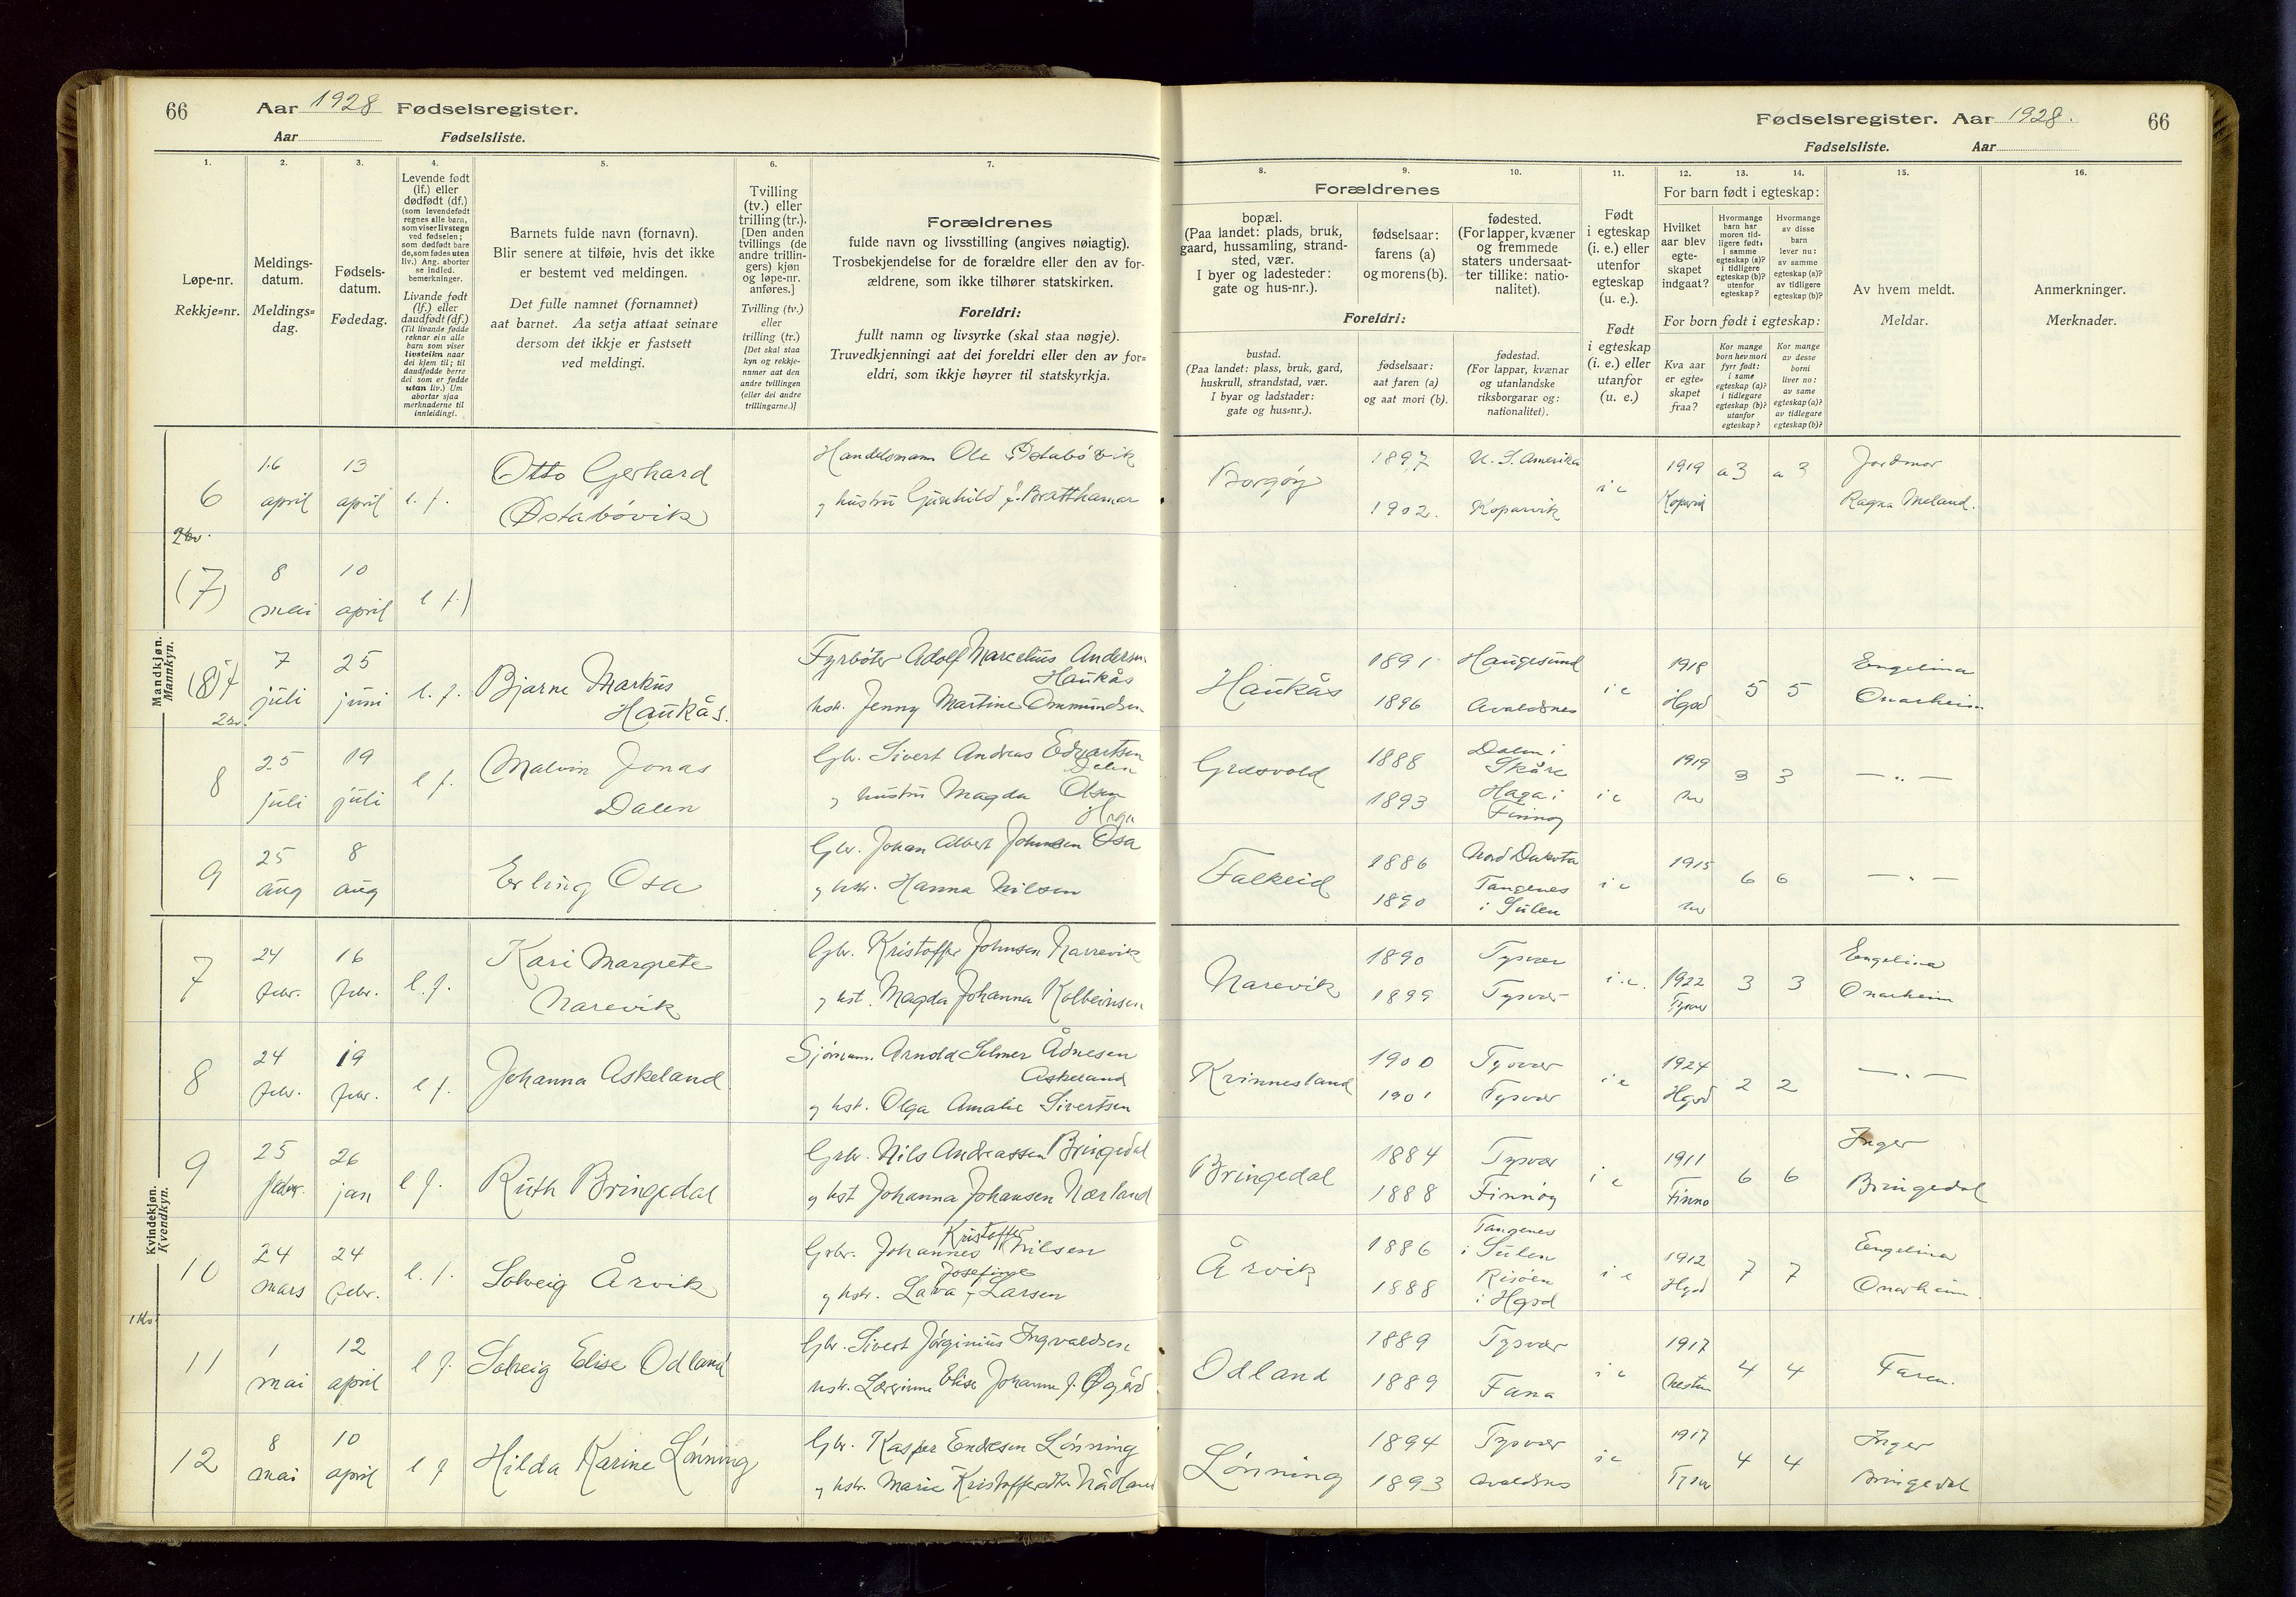 66
Aar 1928 Fødselsregister.
Aar Fødselsliste.
Fødselsregister. Aar 1928.
66
Fødselsliste. Aar
1. 2. 3. 4. 5. 6. 7. 8. 9. 10. 11. 12. 13. 14. 15. 16.
Løpe-nr.
Rekkje=nr.
Meldings-
datum.
Meldings=
dag.
Fødsels-
datum.
Fødedag.
Levende født
(lf.) eller
dødfødt (df.)
(som levendefødt
regnes alle barn,
som viser livstegn
ved fødselen;
som dødfødt bare
de, som fødes uten
liv.) Ang. aborter
se indled.
bemerkninger.
Livande født
(lf.) eller
daudfødt (df.)
(Til livande fødde
reknar ein alle
barn som viser
livsteikn naar
dei kjem til; til
daudfødde berre
dei som er fødde
utan liv.) Um
abortar sjaa
merknaderne til
innleidingi.
Barnets fulde navn (fornavn).
Blir senere at tilføie, hvis det ikke
er bestemt ved meldingen.
Det fulle namnet (fornamnet)
aat barnet. Aa setja attaat seinare
dersom det ikkje er fastsett
ved meldingi.
Tvilling
(tv.) eller
trilling (tr.).
[Den anden
tvillings (de
andre trillin-
gers) kjøn
og løpe-nr.
anføres.]
Tvilling (tv.)
eller
trilling (tr.)
[Det skal staa
kyn og rekkje-
numer aat den
andre tvillingen
(eller dei andre
trillingarne.)]
Forældrenes
fulde navn og livsstilling (angives nøiagtig).
Trosbekjendelse for de forældre eller den av for-
ældrene, som ikke tilhører statskirken.
Foreldri:
fullt namn og livsyrke (skal staa nøgje).
Truvedkjenningi aat dei foreldri eller den av for=
eldri, som ikkje høyrer til statskyrkja.
Forældrenes
bopæl.
(Paa landet: plads, bruk,
gaard, hussamling, strand-
sted, vær.
I byer og ladesteder:
gate og hus-nr.).
fødselsaar:
farens (a)
og morens (b).
fødested.
(For lapper, kvæner
og fremmede
staters undersaat-
ter tillike: natio-
nalitet).
Foreldri:
bustad.
(Paa landet: plass, bruk, gard,
huskrull, strandstad, vær.
I byar og ladstader:
gate og hus=nr.).
fødselsaar:
aat faren (a)
og aat mori (b).
fødestad.
(For lappar, kvænar
og utanlandske
riksborgarar og:
nationalitet).
Født
i egteskap
(i. e.) eller
utenfor
egteskap
(u. e.).
Født
i egteskap
(i. e.) eller
utanfor
(u. e.)
For barn født i egteskap:
Hvilket
aar blev
egte-
skapet
indgaat?
Hvormange
barn har
moren tid-
ligere født,
i samme
egteskap (a)?
i tidligere
egteskap (b)?
utenfor
egteskap?
Hvormange
av disse
barn
lever nu:
av samme
egteskap (a)?
av tidligere
egteskap (b)?
For born født i egteskap:
Kva aar
er egte=
skapet
fraa?
Kor mange
born hev mori
fyrr født:
i same
egteskap (a)?
i tidlegare
egteskap (b)?
utanfor
egteskap?
Kor mange
av desse
borni
liver no:
av same
egteskap (a)?
av tidlegare
egteskap (b)?
Av hvem meldt.
Meldar.
Anmerkninger.
Merknader.
Mandkjøn.
Mannkyn.
6 16 april 13 april l. f. Otto Gerhard Østabøvik
Handelsmann Ole Østabøvik
og hustru Gunhild f. Bratthamar
Borgøy 1897 U. S. Amerika
1902. Kopervik
i e 1919 a 3 a 3 Jordmor
Ragna Meland.
(7) 8 mai 10 april l f)
(8) 7 7 juli 25 juni l. f. Bjarne Markus
Haukås.
Fyrbøter Adolf Marcelius Andersen
Haukås
hst. Jenny Martine Ommundsen
Haukås 1891 Haugesund
1896 Avaldsnes
i e 1918 Hgsd 5 5 Engelina
Onarheim
8 25 juli 19 juli l f. Malvin Jonas
Dalen
Gbr. Sivert Andreas Edvartsen
Dalen
og hustru Magda Olsen
Haga
Græsvold 1888 Dalen i
Skåre
1893 Haga i
Finnøy
i e 1919 3 3 — " —
9 25 aug 8 aug Erling Osa
Gbr. Johan Albert Johnsen Osa
og hstr. Hanna Nilsen
Falkeid 1886 Nord Dakota
1890 Tangenes
i Sulen
i e 1915 6 6 — " —
Kvindekjøn.
Kvendkyn.
7 24 febr. 16 febr. l. f. Kari Margrete
Narevik
Gbr. Kristoffer Johnsen Narrevik
og hst. Magda Johanna Kolbeinsen
Narevik 1890 Tysvær
1899 Tysvær
i. e. 1922 Tysvær 3 3 Engelina
Onarheim
8 24 febr. 19 febr. l f. Johanna Askeland
Sjømann. Arnold Selmer Ådnesen
Askeland
og hst. Olga Amalie Sivertsen
Krinnesland 1900 Tysvær
1901 Tysvær
i e 1924 Hgsd 2 2 — " —
9 25 febr. 26 jan l f. Ruth Bringedal
Gbr. Nils Andreassen Bringedal
og hst Johanna Johansen Nærland
Bringedal 1884 Tysvær
1888 Finnøy
i e 1911 Finnø 6 6 Inger
Bringedal
10 24 mars 24 febr. l. f. Solveig Årvik
Kristoffer
Gbr. Johannes Nilsen
Josefine
og hstr. Lava f. Larsen
Årvik 1886 Tangenes
i Sulen
1888 Risøen
i Hgsd
i e 1912 Hgsd 7 7 Engelina
Onarheim.
11 1 mai 12 april l f. Solveig Elise Odland
Gbr. Sivert Jørginius Ingvaldsen
hst. Lærerinne Elise Johanne f. Øgård
Odland 1889 Tysvær
1889 Fana
i e 1917 4 4 Faren.
12 8 mai 10 april l f Hilda Karine Lønning
Gbr. Kasper Endresen Lønning
og hstr. Marie Kristoffersdtr Nådland
Lønning 1894 Tysvær
1893 Avaldsnes
i e 1917 Tysvær 4 4 Inger
Bringedal